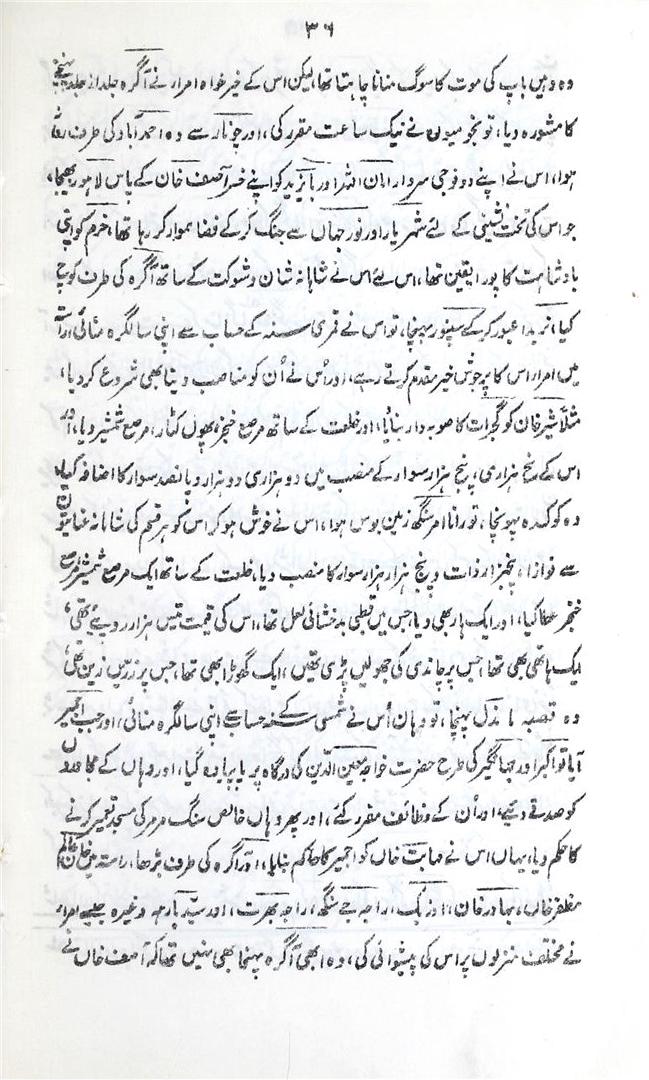 ۳۶
وہ وہیں باپ کی موت کا سوگ منانا چاہتا تھا، لیکن اس کے خیر خواہ امراء نے آگرہ جلد از جلد پہنچنے
کا مشورہ دیا، تو نجومیوں نے نیک ساعت مقرر کی، اور چونار سے وہ احمد آباد کی طرف روانہ
ہوا، اس نے اپنے دو فوجی سردار امان اللہ اور بایزید کو اپنے خسر آصف خان کے پاس لاہور بھیجا،
جو اس کی تخت نشینی کے لئے شہریار اور نور جہاں سے جنگ کر کے فضا ہموار کر رہا تھا، خرم کو اپنی
بادشاہت کا پورا یقین تھا، اس لئے اس نے شاہانہ شان و شوکت کے ساتھ آگرہ کی طرف کوچ
کیا، نربدا عبور کر کے سینور پہنچا، تو اس نے قمری سنہ کے حساب سے اپنی سالگرہ منائی، راستہ
میں امراء اس کا پرجوش خیر مقدم کرتے رہے، اور اس نے اُن کو مناصب دینا بھی شروع کر دیا،
مثلاً شیر خان کو گجرات کا صوبہ دار بنایا، اور خلعت کے ساتھ مرصع خنجر، پھول کٹار، مرصع شمشیر دیا، اور
اس کے پنج ہزاری، پنج ہزار سوار کے منصب میں دو ہزاری دو ہزار و پانصد سوار کا اضافہ کیا،
وہ کوکندہ پہونچا، تو رانا امر سنگھ زمین بوس ہوا، اس نے خوش ہو کر اس کو ہر قسم کی شاہانہ عنایتوں
سے نوازا، پنجہزار ذات و پنج ہزار ہزار سوار کا منصب دیا، خلعت کے ساتھ ایک مرصع شمشیر، مرصع
خنجر عطا کیا، اور ایک ہار بھی دیا، جس میں قطبی بدخشانی لعل تھا، اس کی قیمت تیس ہزار روپیے تھی،
ایک ہاتھی بھی تھا، جس پر چاندی کی جھولیں پڑی تھیں، ایک گھوڑا بھی تھا، جس پر زریں زین تھی،
وہ قصبہ ماندل پہنچا، تو وہاں اُس نے شمسی سنہ کے حساب سے اپنی سالگرہ منائی، اور جب اجمیر
آیا تو اکبر اور جہانگیر کی طرح حضرت خواجہ معین الدین کی درگاہ پر پا پیادہ گیا، اور وہاں کے مجاوروں
کو صدقے دیئے، اور اُن کے وظائف مقرر کئے، اور پھر وہاں خالص سنگ مرمر کی مسجد تعمیر کرنے
کا حکم دیا، یہاں اس نے مہابت خاں کو اجمیر کا حاکم بنایا، اور آگرہ کی طرف بڑھا، راستہ میں خان عالم
مظفر خاں، بہادر خان، اوزبک، راجہ جے سنگھ، راجہ بھرت، اور سید بارہہ وغیرہ جیسے امراء
نے مختلف منزلوں پر اس کی پیشوائی کی، وہ ابھی آگرہ پہنچا بھی نہیں تھا کہ آصف خاں نے